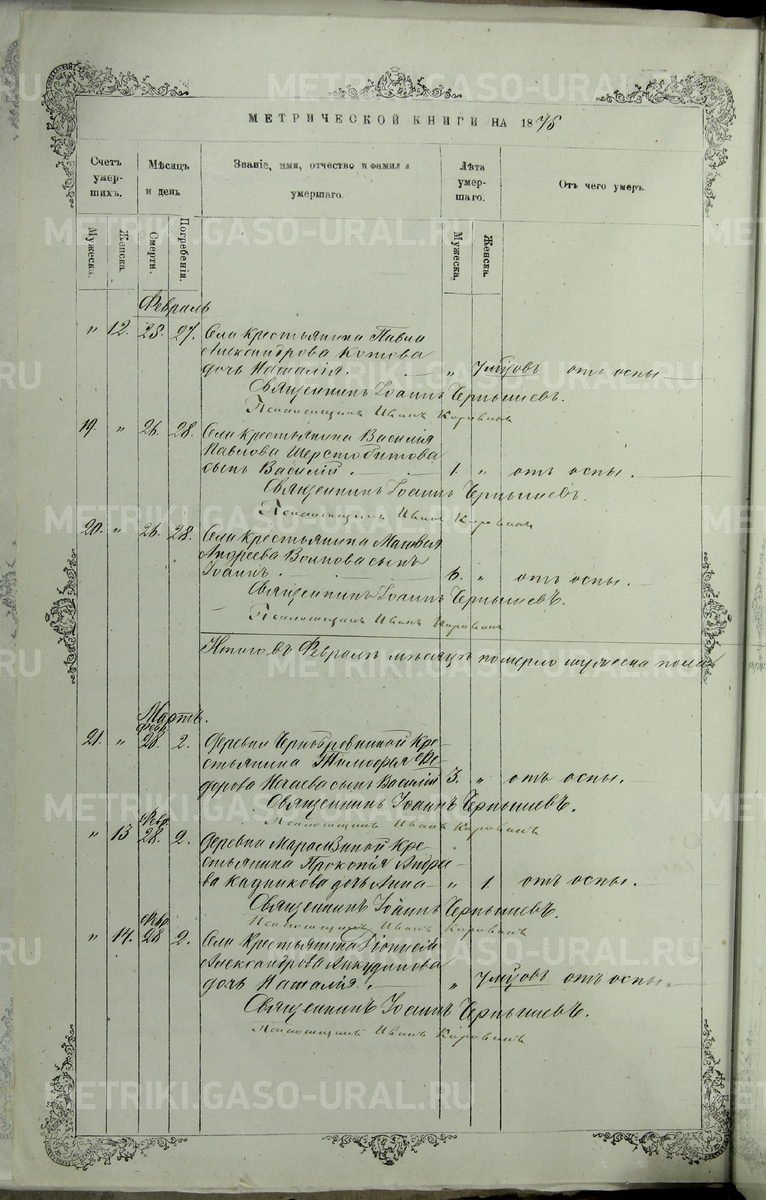 МЕТРИЧЕСКОЙ КНИГИ НА 1876
Счетъ умершихъ.
Мѣсяцъ и день
Званіе, имя, отчество и фамилія умершаго.
Лѣта умершаго.
Отъ чего умеръ.
Мужеска. Женска. Смерти. Погребенія. Мужеска. Женска.
Февраль
" 12. 25. 27. Села крестьянина Павла
Александрова Котова
дочь Наталія. " 7 мѣсяцовъ отъ оспы
Священникъ Іоаннъ Чернышевъ.
Псаломщикъ Иванъ Коровинъ
19. " 26. 28. Села крестьянина Василія
Павлова Шерстобитова
сынъ Василій 1. " отъ оспы.
Священникъ Іоаннъ Чернышевъ.
Псаломщикъ Иванъ Коровинъ
20. " 26. 28. Села крестьянина Матвея
Андреева Волкова сынъ
Іоаннъ. 6. " отъ оспы.
Священникъ Іоаннъ Чернышевъ.
Псаломщикъ Иванъ Коровинъ
Итого въ Февралѣ мѣсяцѣ померло мужеска пола
Мартъ.
Февр.
21. " 28. 2. Деревни Кре-
стьянина Тимофея Ѳе-
дорова Нечаева сынъ Василій 3. " отъ оспы.
Священникъ Іоаннъ Чернышевъ.
Псаломщикъ Иванъ Коровинъ
Февр.
" 13 28. 2. Деревни Кре-
стьянина Прокопія Андрее-
ва Кадникова дочь Анна " 1. отъ оспы.
Священникъ Іоаннъ Чернышевъ.
Псаломщикъ Иванъ Коровинъ
Февр.
" 14. 28 2. Села крестьянина
Александрова Анкудинова
дочь Наталія. " 7 мѣсяцовъ отъ оспы.
Священникъ Іоаннъ Чернышевъ.
Псаломщикъ Иванъ Коровинъ
METRIKI.GASO-URAL.RU